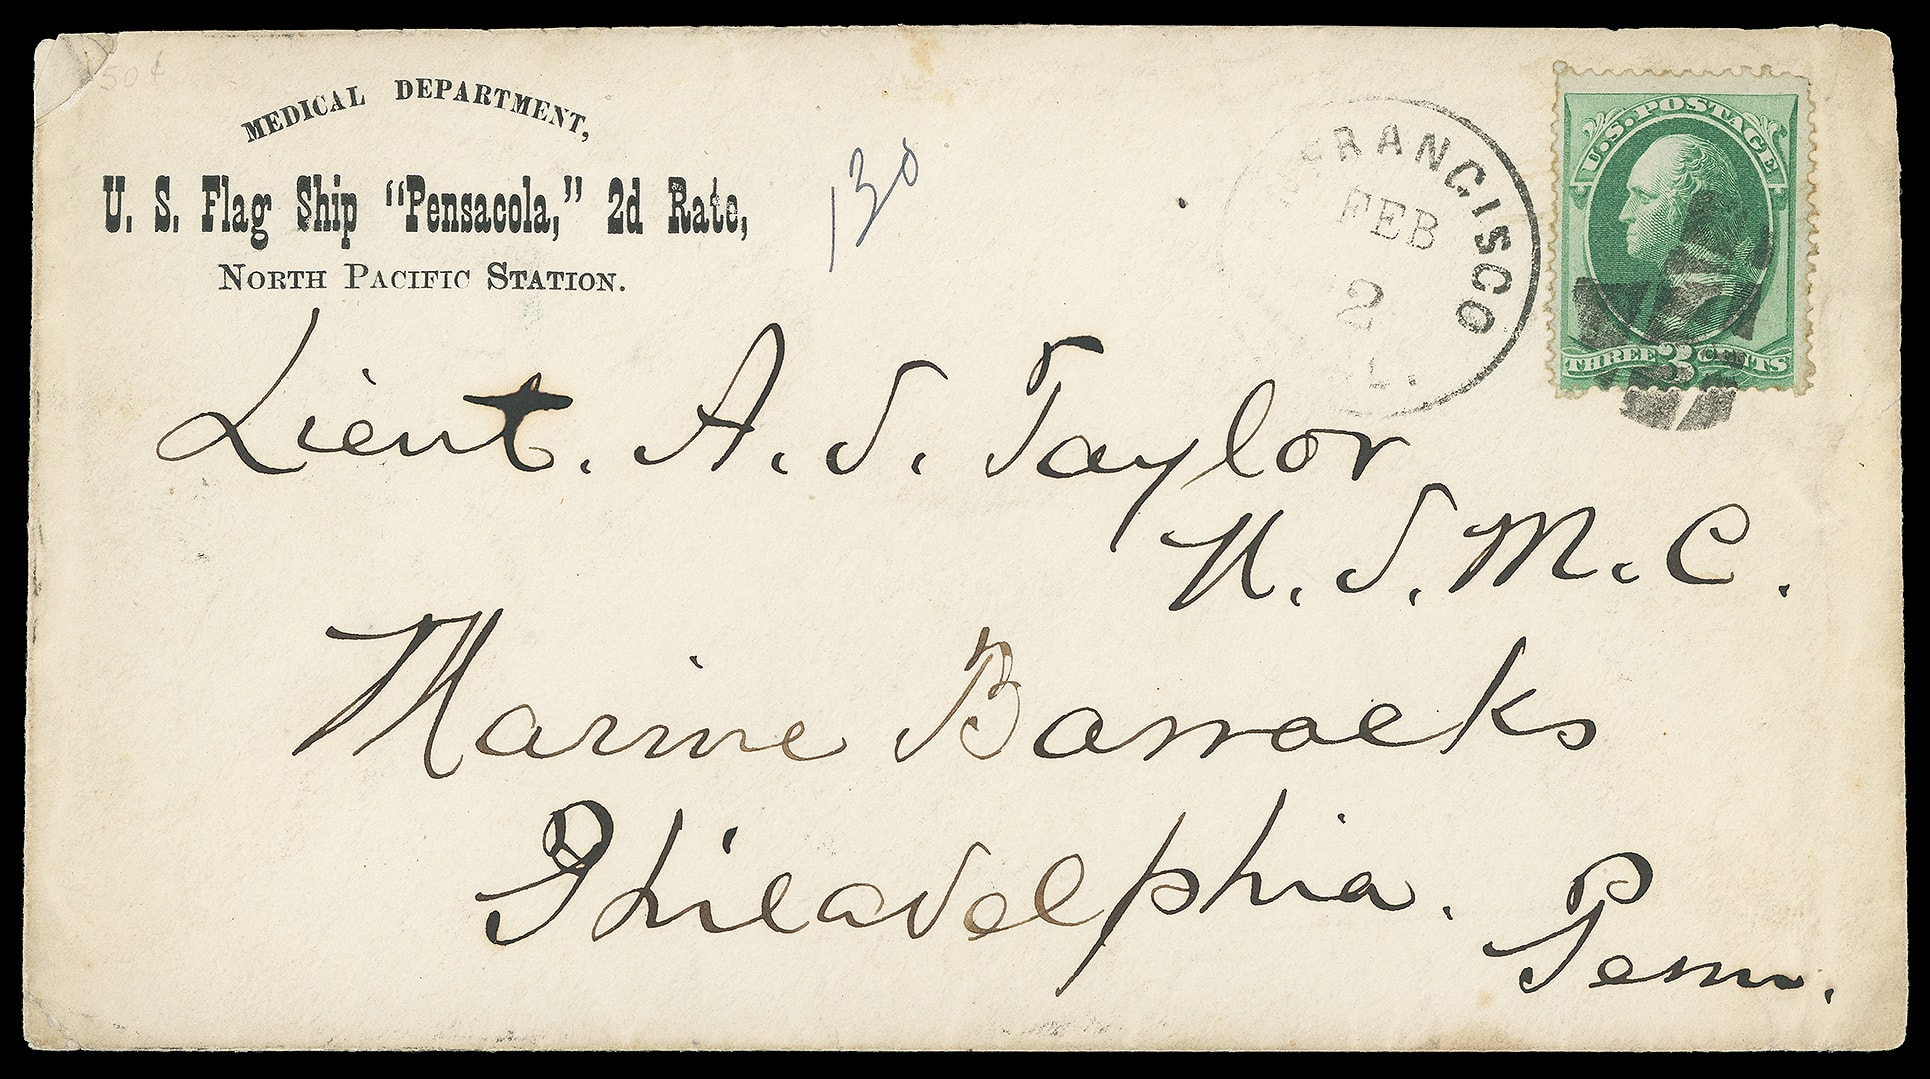 50¢
MEDICAL DEPARTMENT,
U. S. Flag Ship "Pensacola," 2d Rate,
NORTH PACIFIC STATION.
130
FRANCISCO
FEB
2
L.
U.S. POSTAGE
THREE 3 CENTS
Lieut. A. S. Taylor
U. S. M. C.
Marine Barracks
Philadelphia.
Penn.